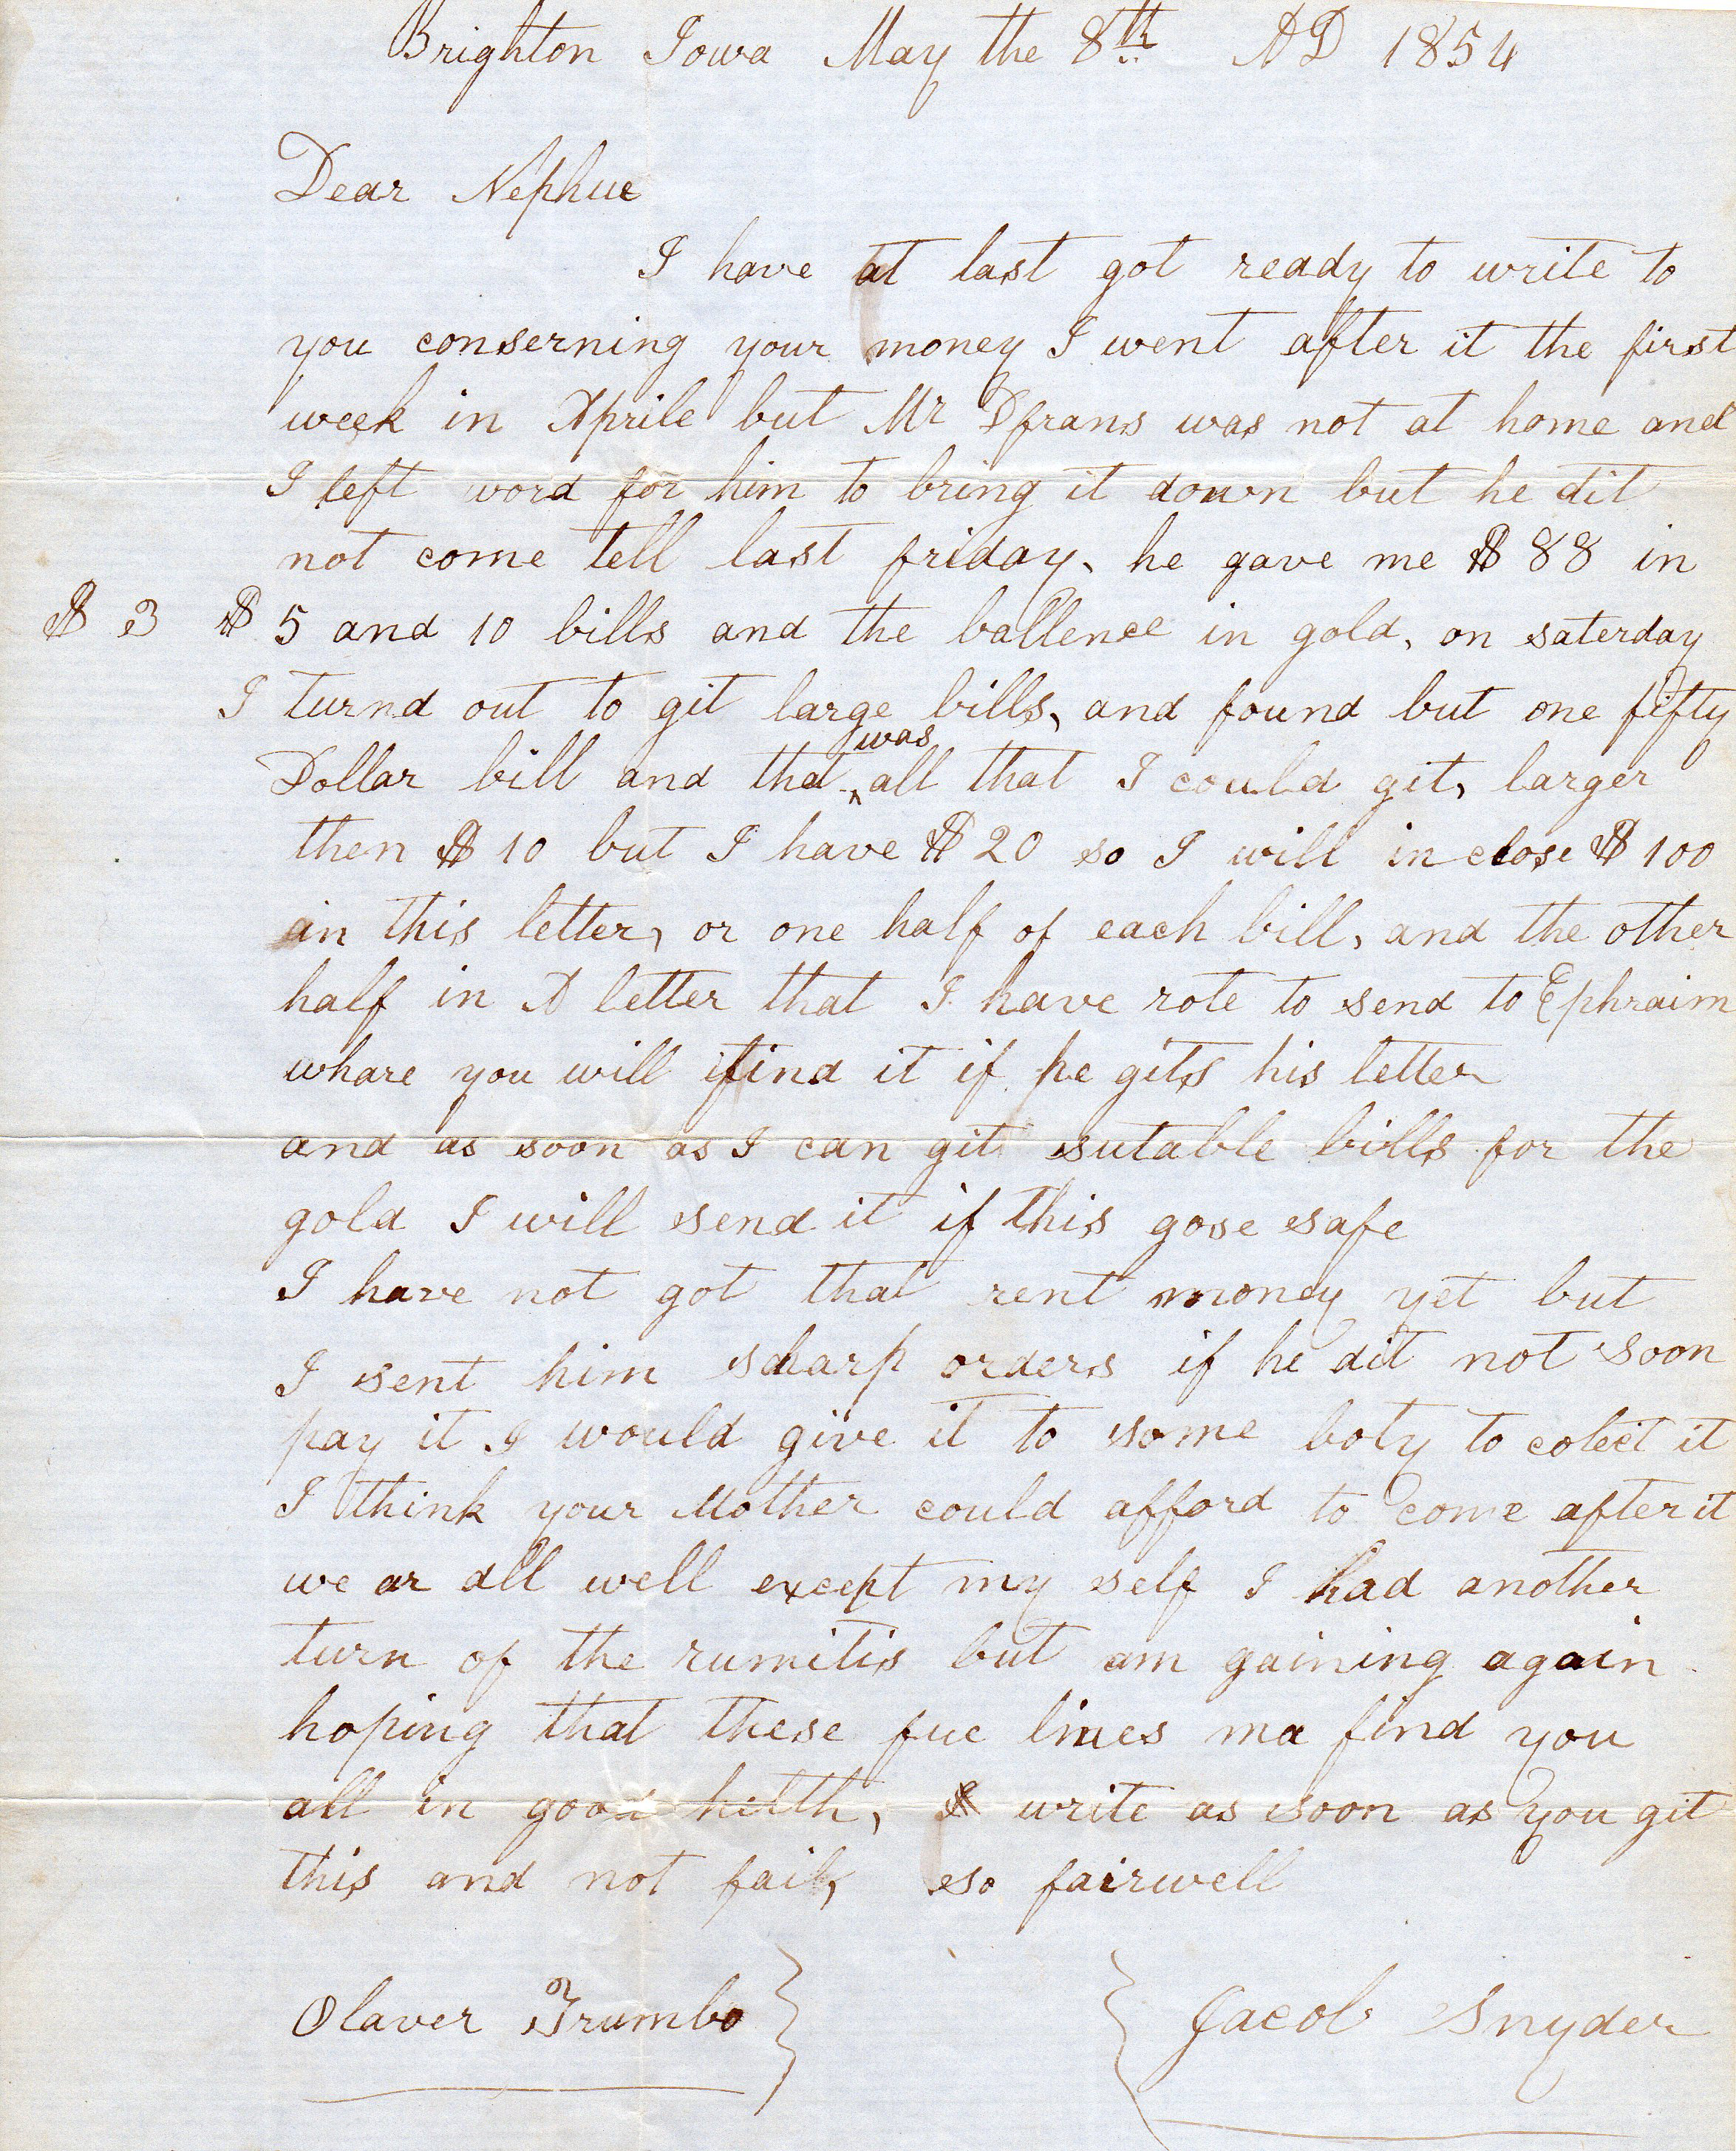 Brighton Iowa May the 8th AD 1854
Dear Nephue
I have at last got ready to write to
you conserning your money I went after it the first
week in Aprile but Mr Dfrans was not at home and
I left word for him to bring it down but he dit
not come tell last friday, he gave me $88 in
$3 $5 and 10 bills and the ballence in gold, on saterday
I turnd out to git large bills, and found but one fifty
Dollar bill and that was all that I could git, larger
then $10 but I have $20 so I will in close $100
in this letter, or one half of each bill, and the other
half in A letter that I have rote to send to Ephraim
whare you will find it if he gits his letter
and as soon as I can git sutable bills for the
gold I will send it if this gose safe
I have not got that rent money yet but
I sent him sharp orders if he dit not soon
pay it I would give it to some boty to colect it
I think your Mother could afford to come after it
we ar all well except my self I had another
turn of the rumitis but am gaining again
hoping that these fue lines ma find you
all in good helth, & write as soon as you git
this and not fail, so fairwell
Olaver Trumbo } { Jacob Snyder